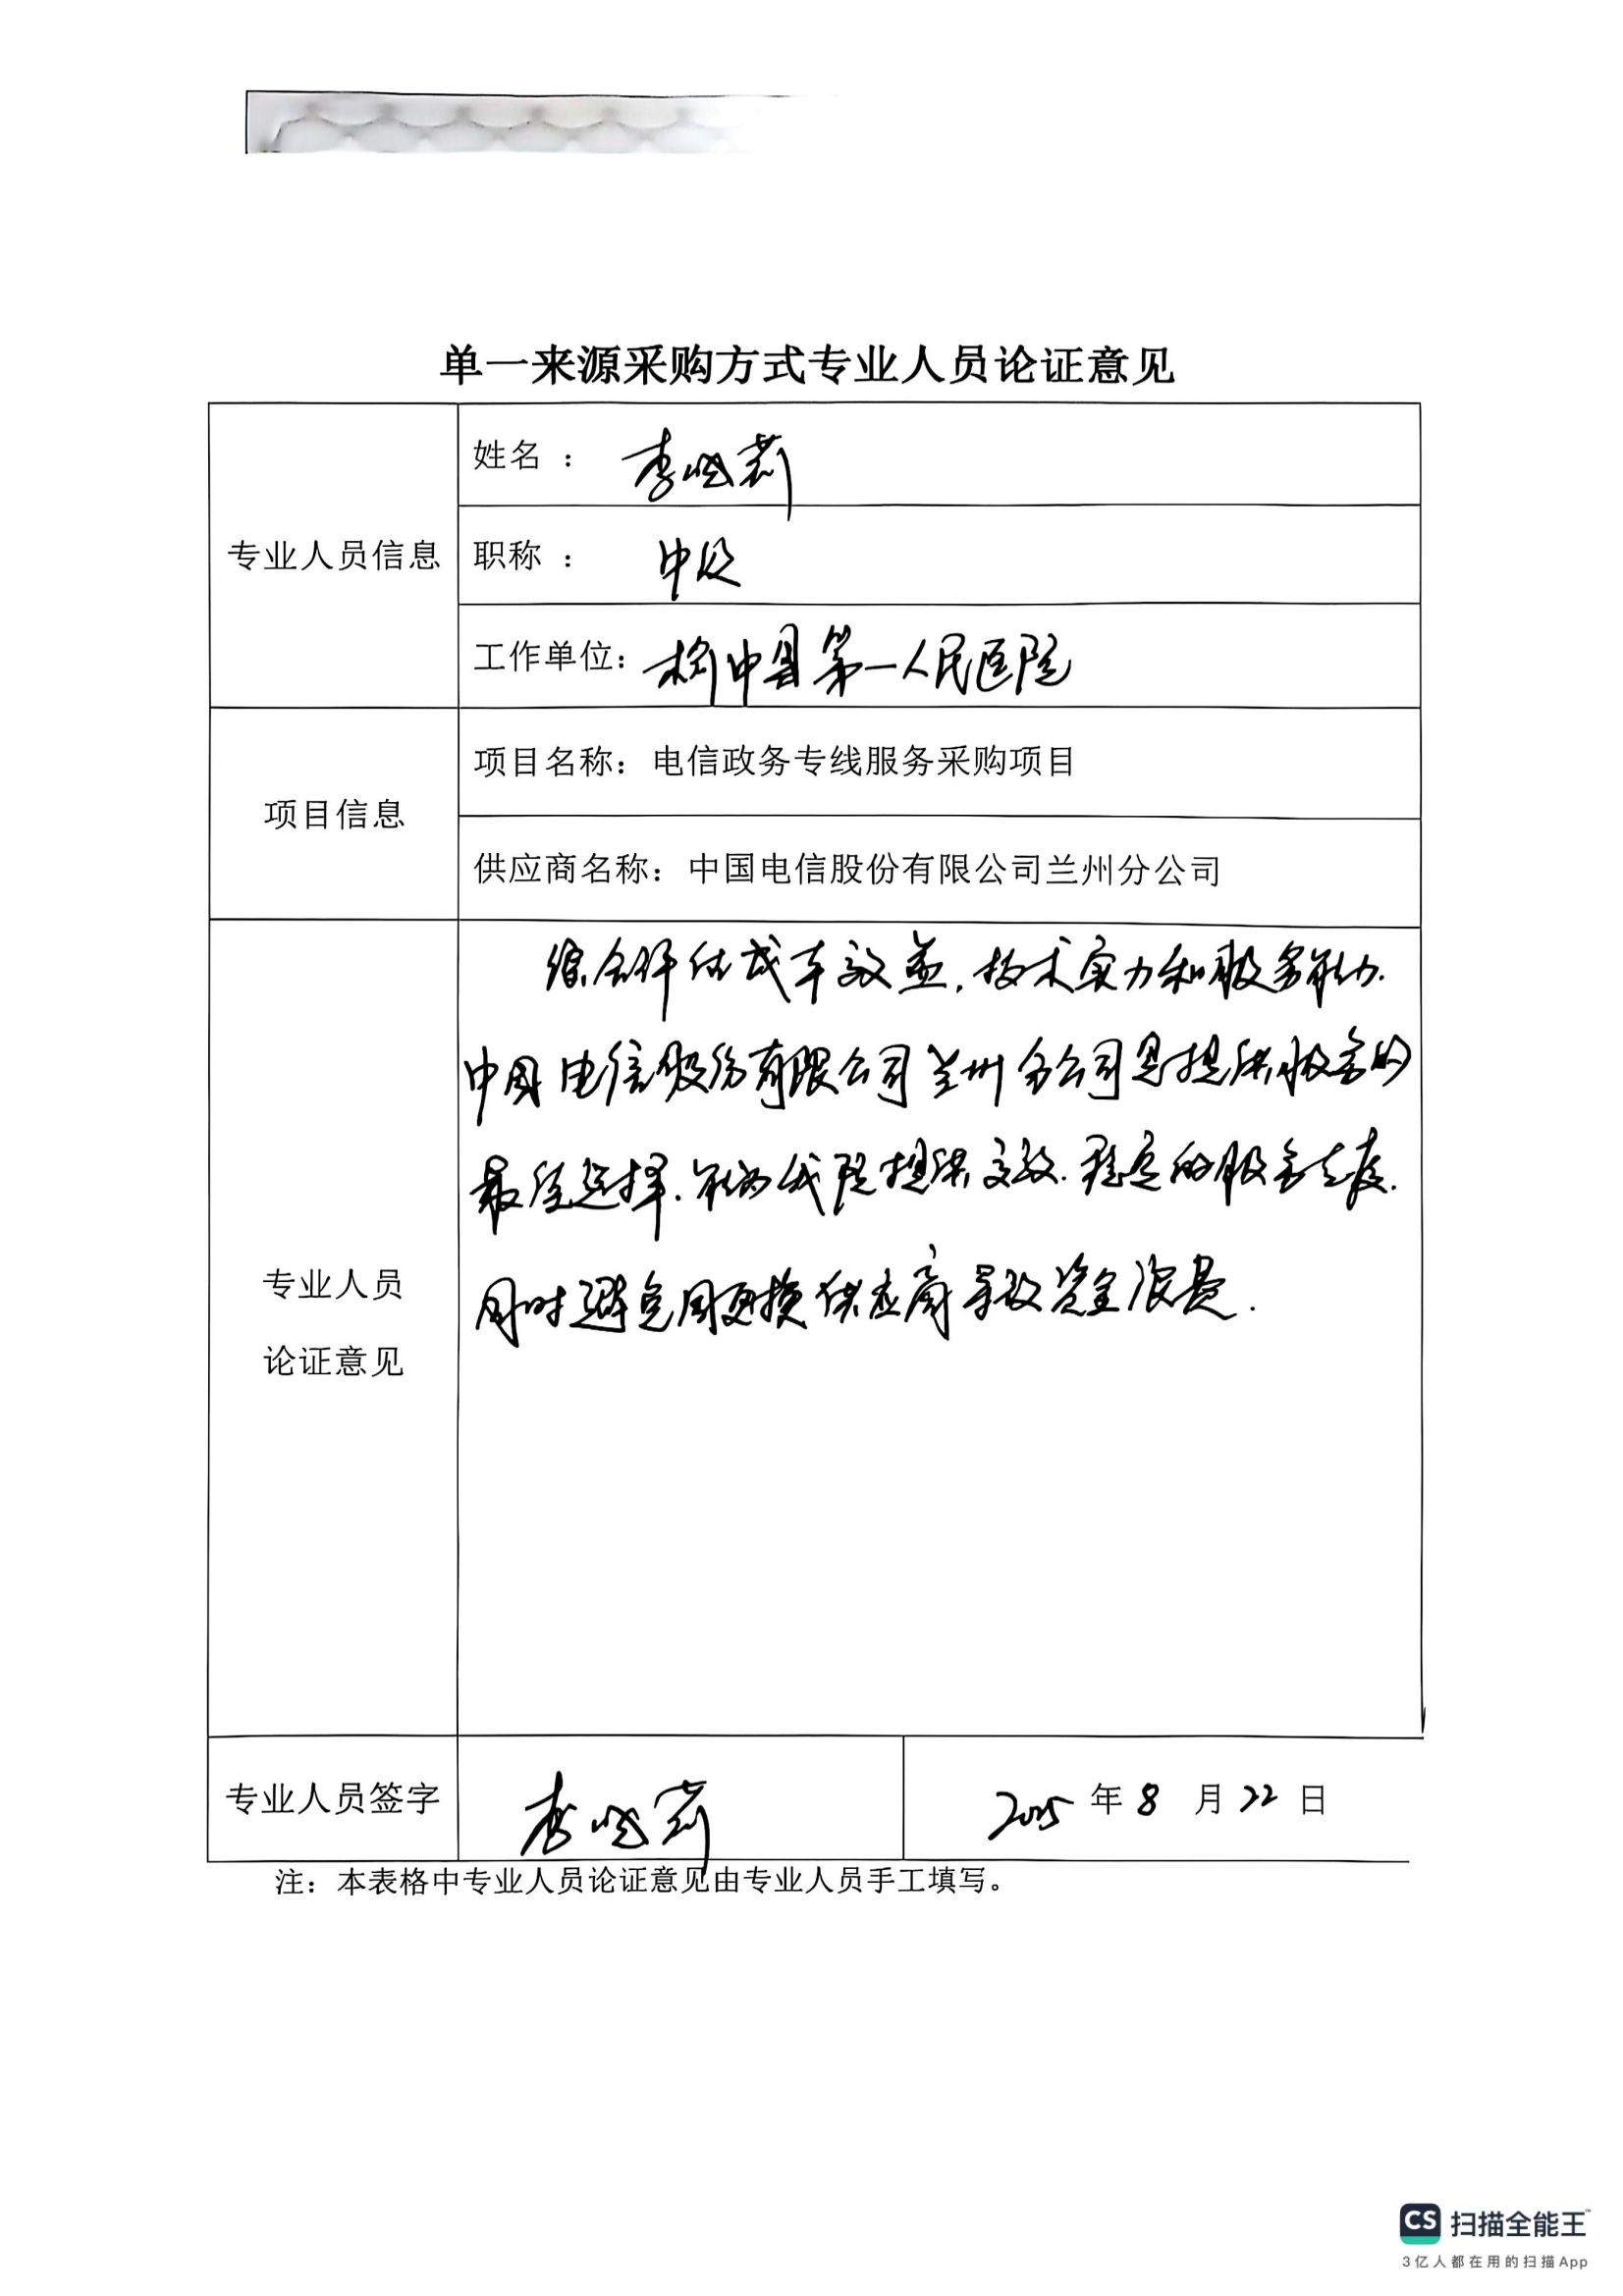 单一来源采购方式专业人员论证意见
专业人员信息
姓名：李晓莉
职称：中级
工作单位：榆中县第一人民医院
项目信息
项目名称：电信政务专线服务采购项目
供应商名称：中国电信股份有限公司兰州分公司
专业人员
论证意见
综合评估成本效益，技术实力和服务能力.
中国电信股份有限公司兰州分公司是提供服务的
最佳选择.能为我院提供高效.稳定的服务支撑.
同时避免因更换供应商导致资金浪费.
专业人员签字
李晓莉
2025年8月22日
注：本表格中专业人员论证意见由专业人员手工填写。
CS 扫描全能王™
3亿人都在用的扫描App